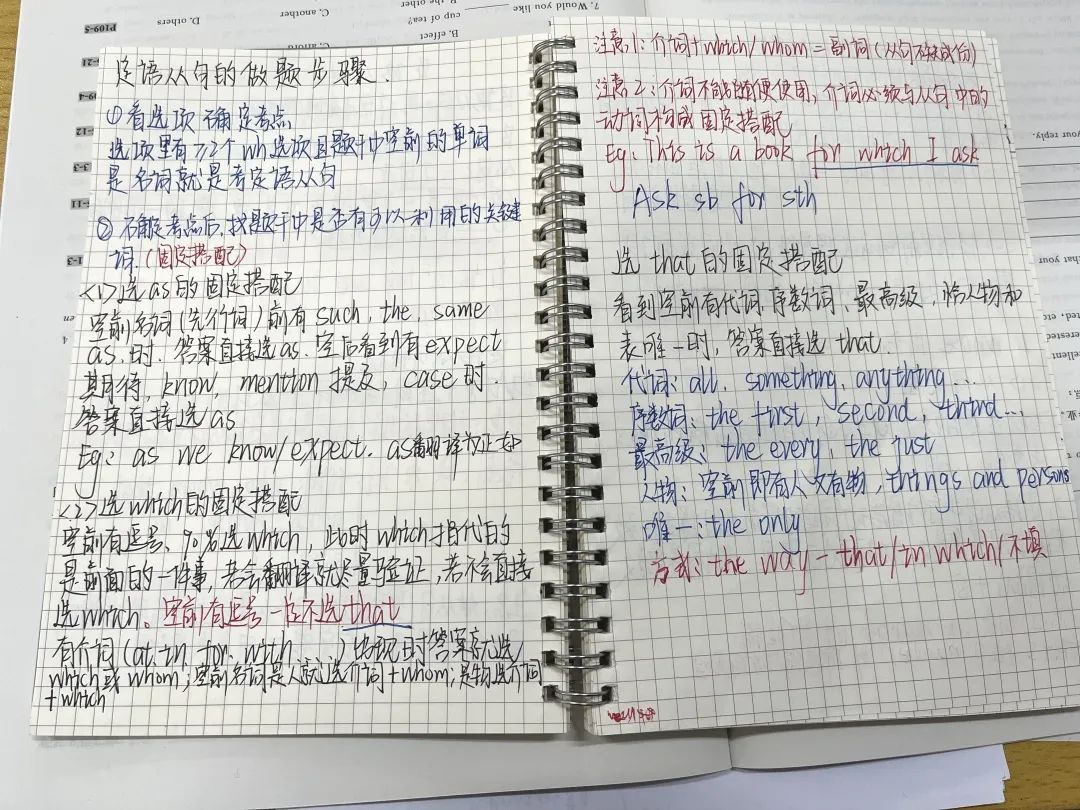 定语从句的做题步骤.
①看选项 确定考点
选项里有≥2个wh选项且题干中空前的单词
是名词就是考定语从句
②确定考点后,找题干中是否有可以利用的关键
词.(固定搭配)
<1>选as的固定搭配
空前名词(先行词)前有such, the same
as.时.答案直接选as.空后看到有expect
期待, know, mention 提及, case时.
答案直接选as
Eg: as we know/expect. as翻译为正如
<2>选which的固定搭配
空前有逗号、90%选which, 此时which指代的
是前面的一件事,若会翻译就尽量验证,若不会直接
选which、空前有逗号一定不选that
有介词(at, in, for, with ...)出现时答案就选
which或whom;空前名词是人就选介词+whom;是物选介词
+which
注意1:介词+which/whom=副词(从句不缺成份)
注意2:介词不能随便使用,介词必须与从句中的
动词构成固定搭配
Eg: This is a book for which I ask
Ask sb for sth
选 that 的固定搭配
看到空前有代词.序数词、最高级,恰人物和
表唯一时,答案直接选that.
代词: all. something, anything...
序数词: the first, second, third...
最高级: the every, the just
人物: 空前即有人又有物, things and persons
唯一: the only
方式: the way - that/in which/不填
7. Would you like
cup of tea?
B. the other
C. another
D. others
B. effect
P109-5
your reply.
that your